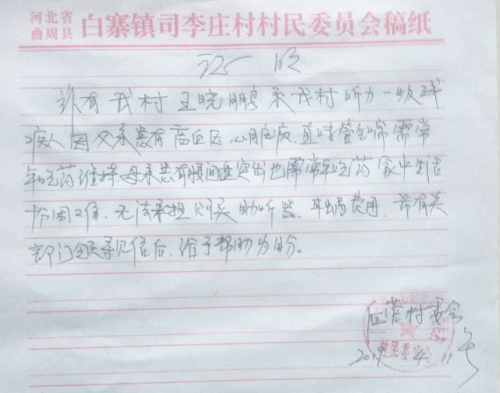 河北省
曲周县 白寨镇司李庄村村民委员会稿纸
证明
兹有我村王晓鹏系我村听力一级残
病人因父亲患有高血压、心脏病、血管 需常
年吃药维持母亲患有腰间盘突出也需常年吃药家中生活
困难，无法承担购买助听器、耳蜗费用，希有关
部门领导见信后，给予帮助为盼。
村委会
2019.4.11号